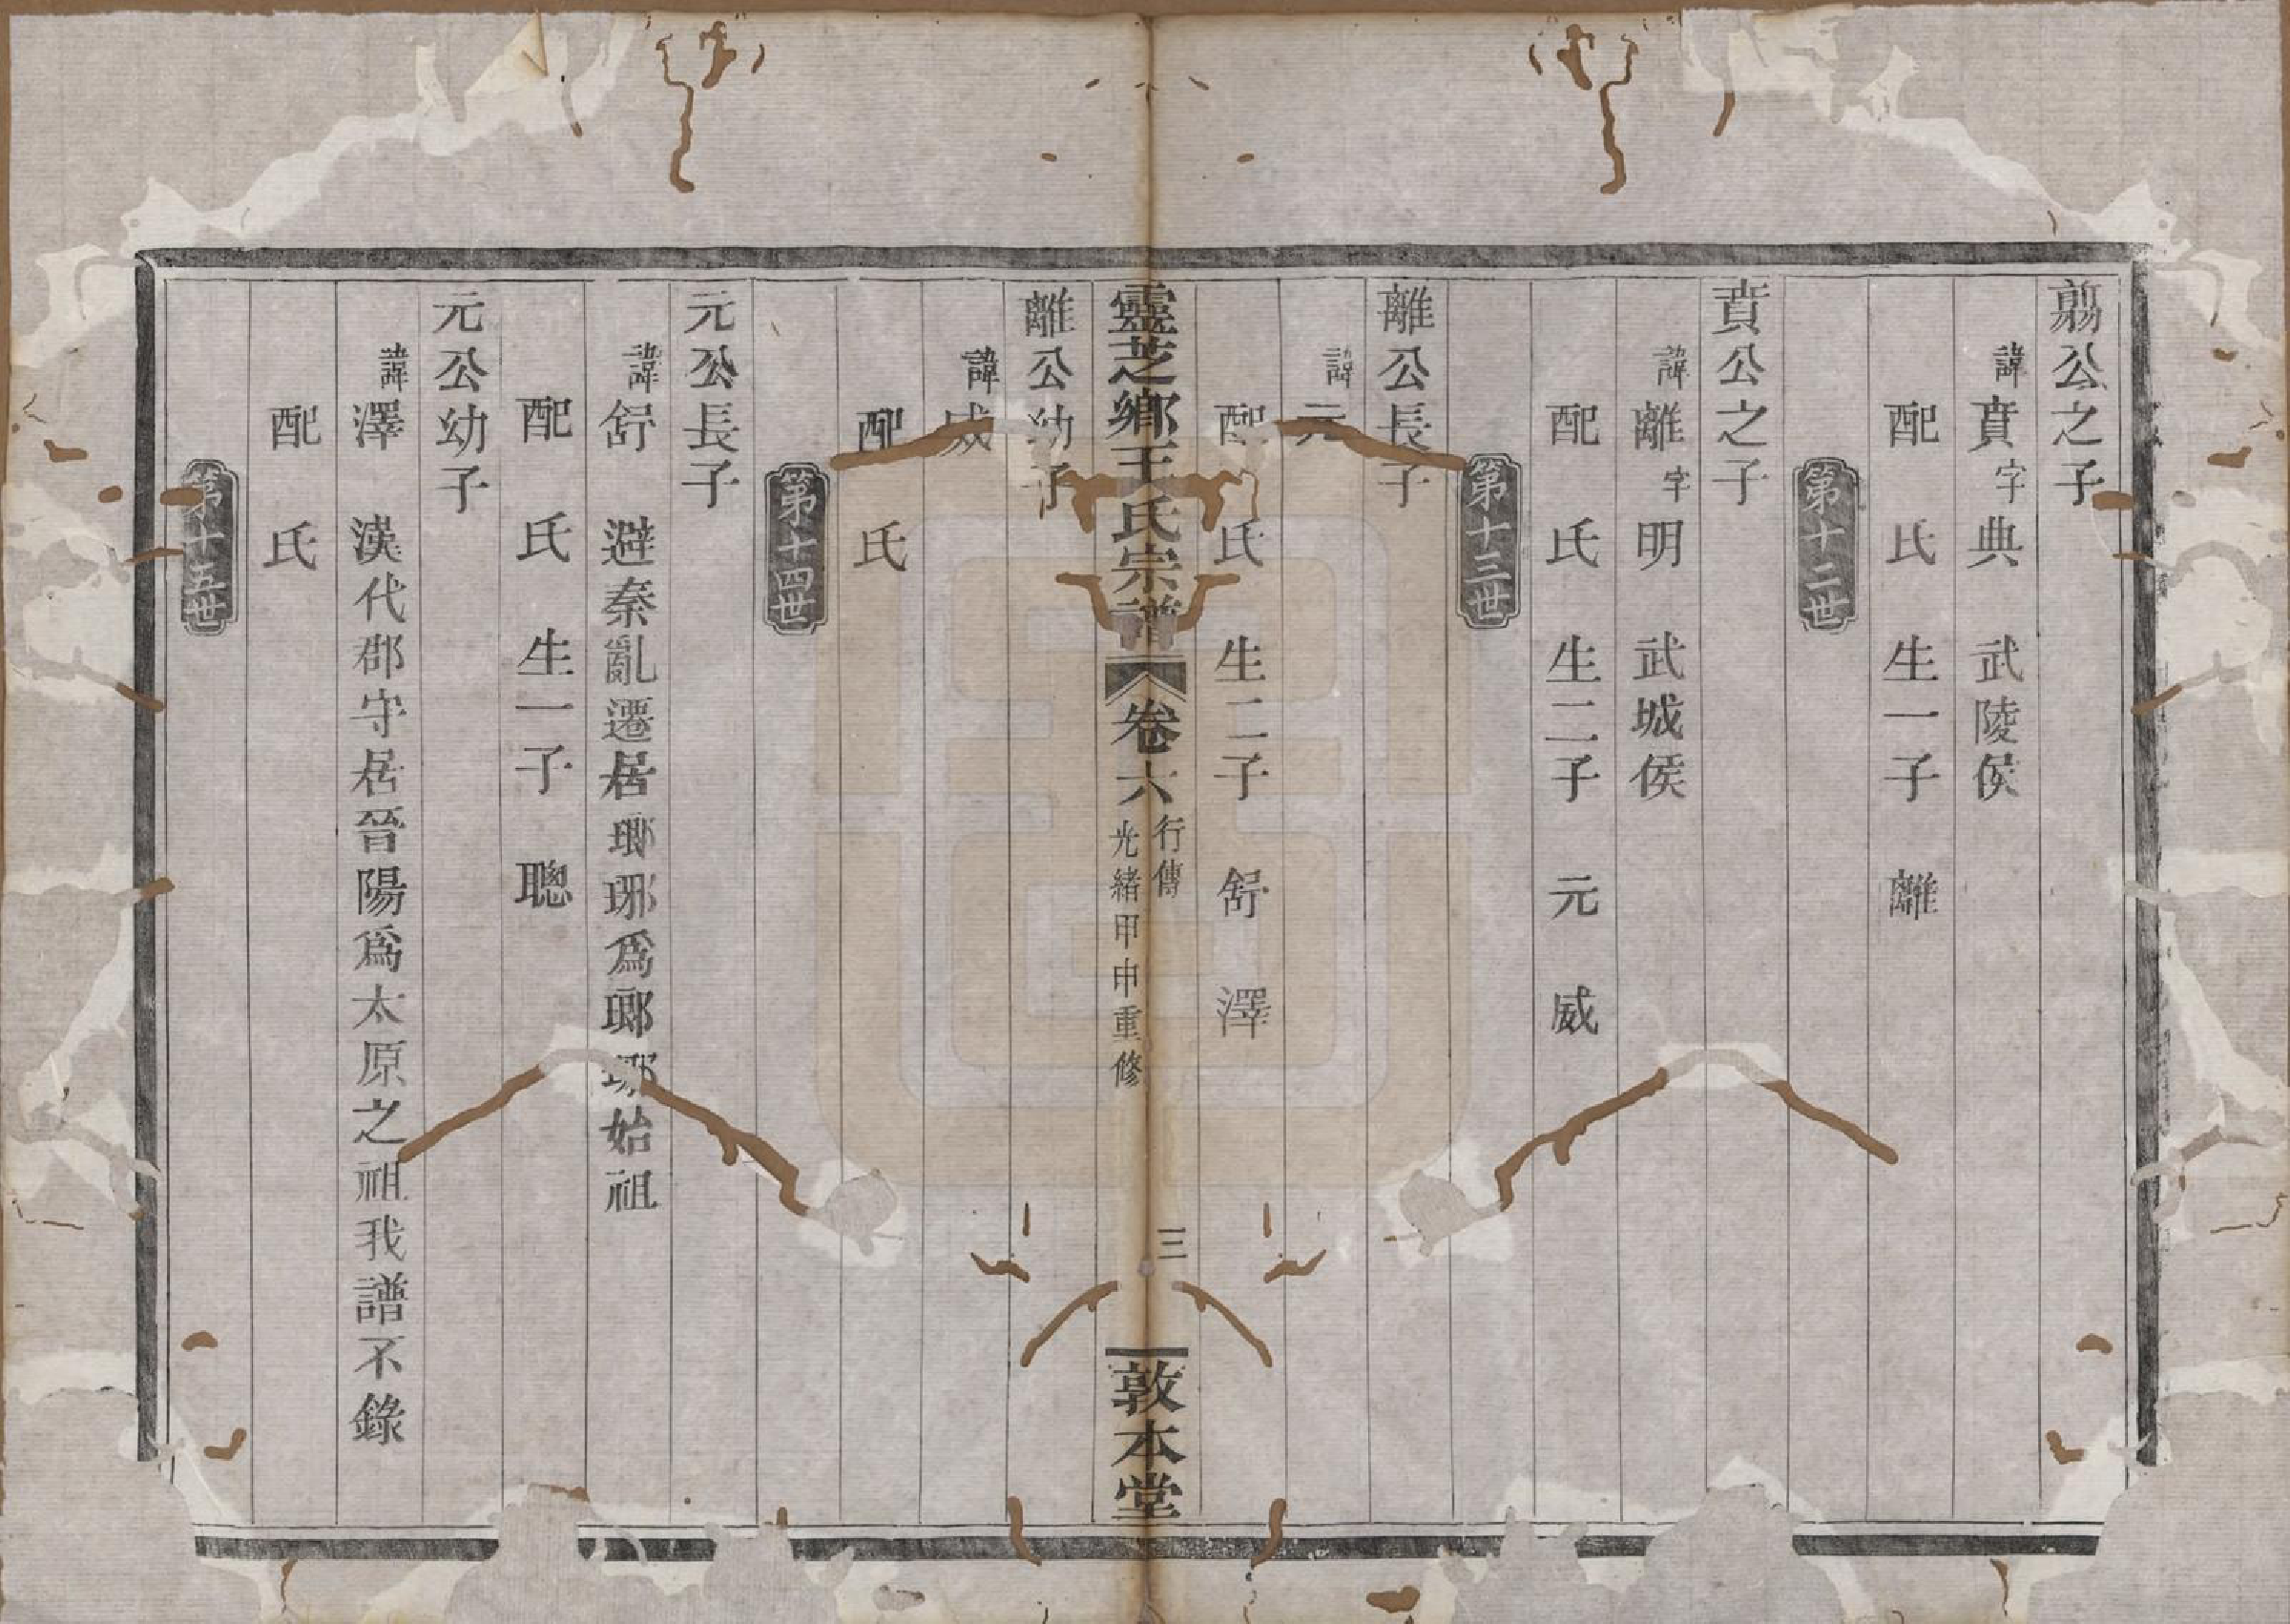 翦公之子
諱賁字典　武陵侯
配　氏　生一子　離
第十二世
賁公之子
諱離字明　武城侯
配　氏　生二子　元　威
第十三世
離公長子
諱元
配　氏　生二子　舒　澤
靈芝鄉王氏宗譜　卷六　行傳　光緒甲申重修　三　敦本堂
離公幼子
諱威
配　氏
第十四世
元公長子
諱舒　避秦亂遷居瑯琊爲瑯琊始祖
配　氏　生一子　聰
元公幼子
諱澤　漢代郡守居晉陽爲太原之祖我譜不錄
配　氏
第十五世